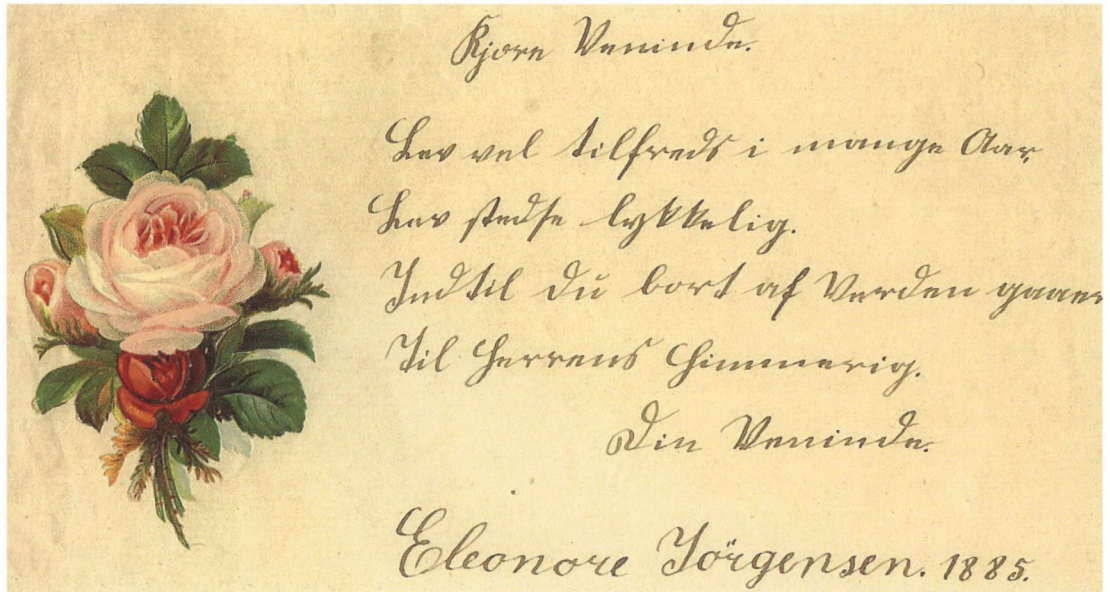 Kjore Veninde.
Lev vel tilfreds i mange Aar
Lev stedse lykkelig.
Indtil du bort af Verden gaaer
Til Herrens Himmerig.
Din Veninde.
Eleonore Jörgensen. 1885.